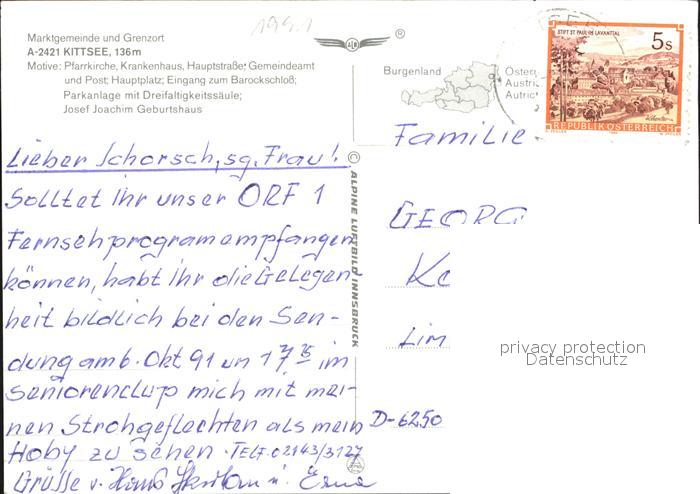 1991
Marktgemeinde und Grenzort
A-2421 KITTSEE, 136m
Motive: Pfarrkirche, Krankenhaus, Hauptstraße; Gemeindeamt
und Post; Hauptplatz; Eingang zum Barockschloß;
Parkanlage mit Dreifaltigkeitssäule;
Josef Joachim Geburtshaus
®
Burgenland
Österr
Austri
Autric
STIFT ST. PAUL IM LAVANTTAL
5s
REPUBLIK ÖSTERREICH
Lieber Schorsch, sg. Frau!
Solltet ihr unser ORF 1
Fernsehprogram empfangen
können, habt ihr die Gelegen
heit bildlich bei den Sen-
dung am 6. Okt 91 un 17 25 im
Seniorenclup mich mit mei-
nen Strohgeflechten als mein
Hoby zu sehen. TELF. 02143/3127
Grüsse v. Hans u. Erna
© ALPINE LUFTBILD INNSBRUCK
Familie
GEORG
Kc
Lim
D-6250
privacy protection
Datenschutz